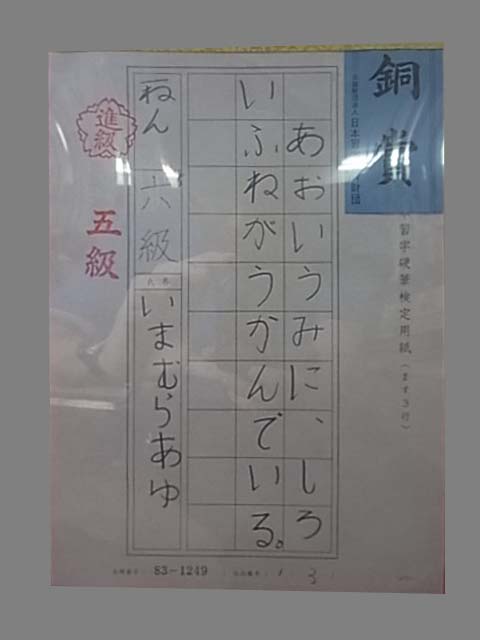 銅賞
日本習字 財団
習字硬筆検定用紙(ます3行)
あおいうみに、しろ
いふねがうかんでいる。
ねん 六級
氏名
いまむらあゆ
進級
五級
83-1249
1 3